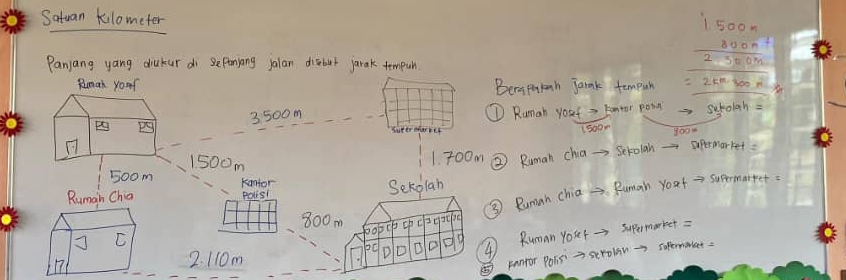 Satuan Kilometer
Panjang yang diukur di sepanjang jalan disebut jarak tempuh.
Rumah Yosef
3.500m
Supermarket
500m
1.500m
1.700m
Rumah Chia
Kantor
Polisi
Sekolah
800m
2.110m
Berapakah jarak tempuh
① Rumah Yosef → Kantor Polisi → Sekolah =
1500m
800m
② Rumah Chia → Sekolah → Supermarket =
③ Rumah Chia → Rumah Yosef → Supermarket =
④ Rumah Yosef → Supermarket =
⑤ Kantor Polisi → Sekolah → Supermarket =
1.500m
800m +
2.300m
= 2 km 300 m